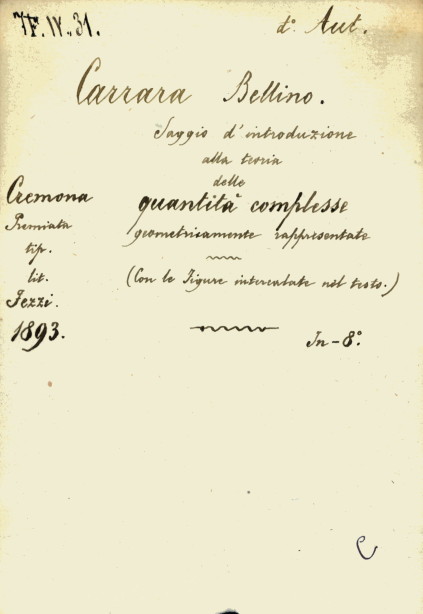 7F.IV.31.
d.° Aut.
Carrara Bellino.
Saggio d'introduzione
alla teoria
delle
quantità complesse
geometricamente rappresentate
(Con le Figure intercalate nel testo.)
Cremona
Premiata
tip.
lit.
Fezzi.
1893.
In-8.°
C